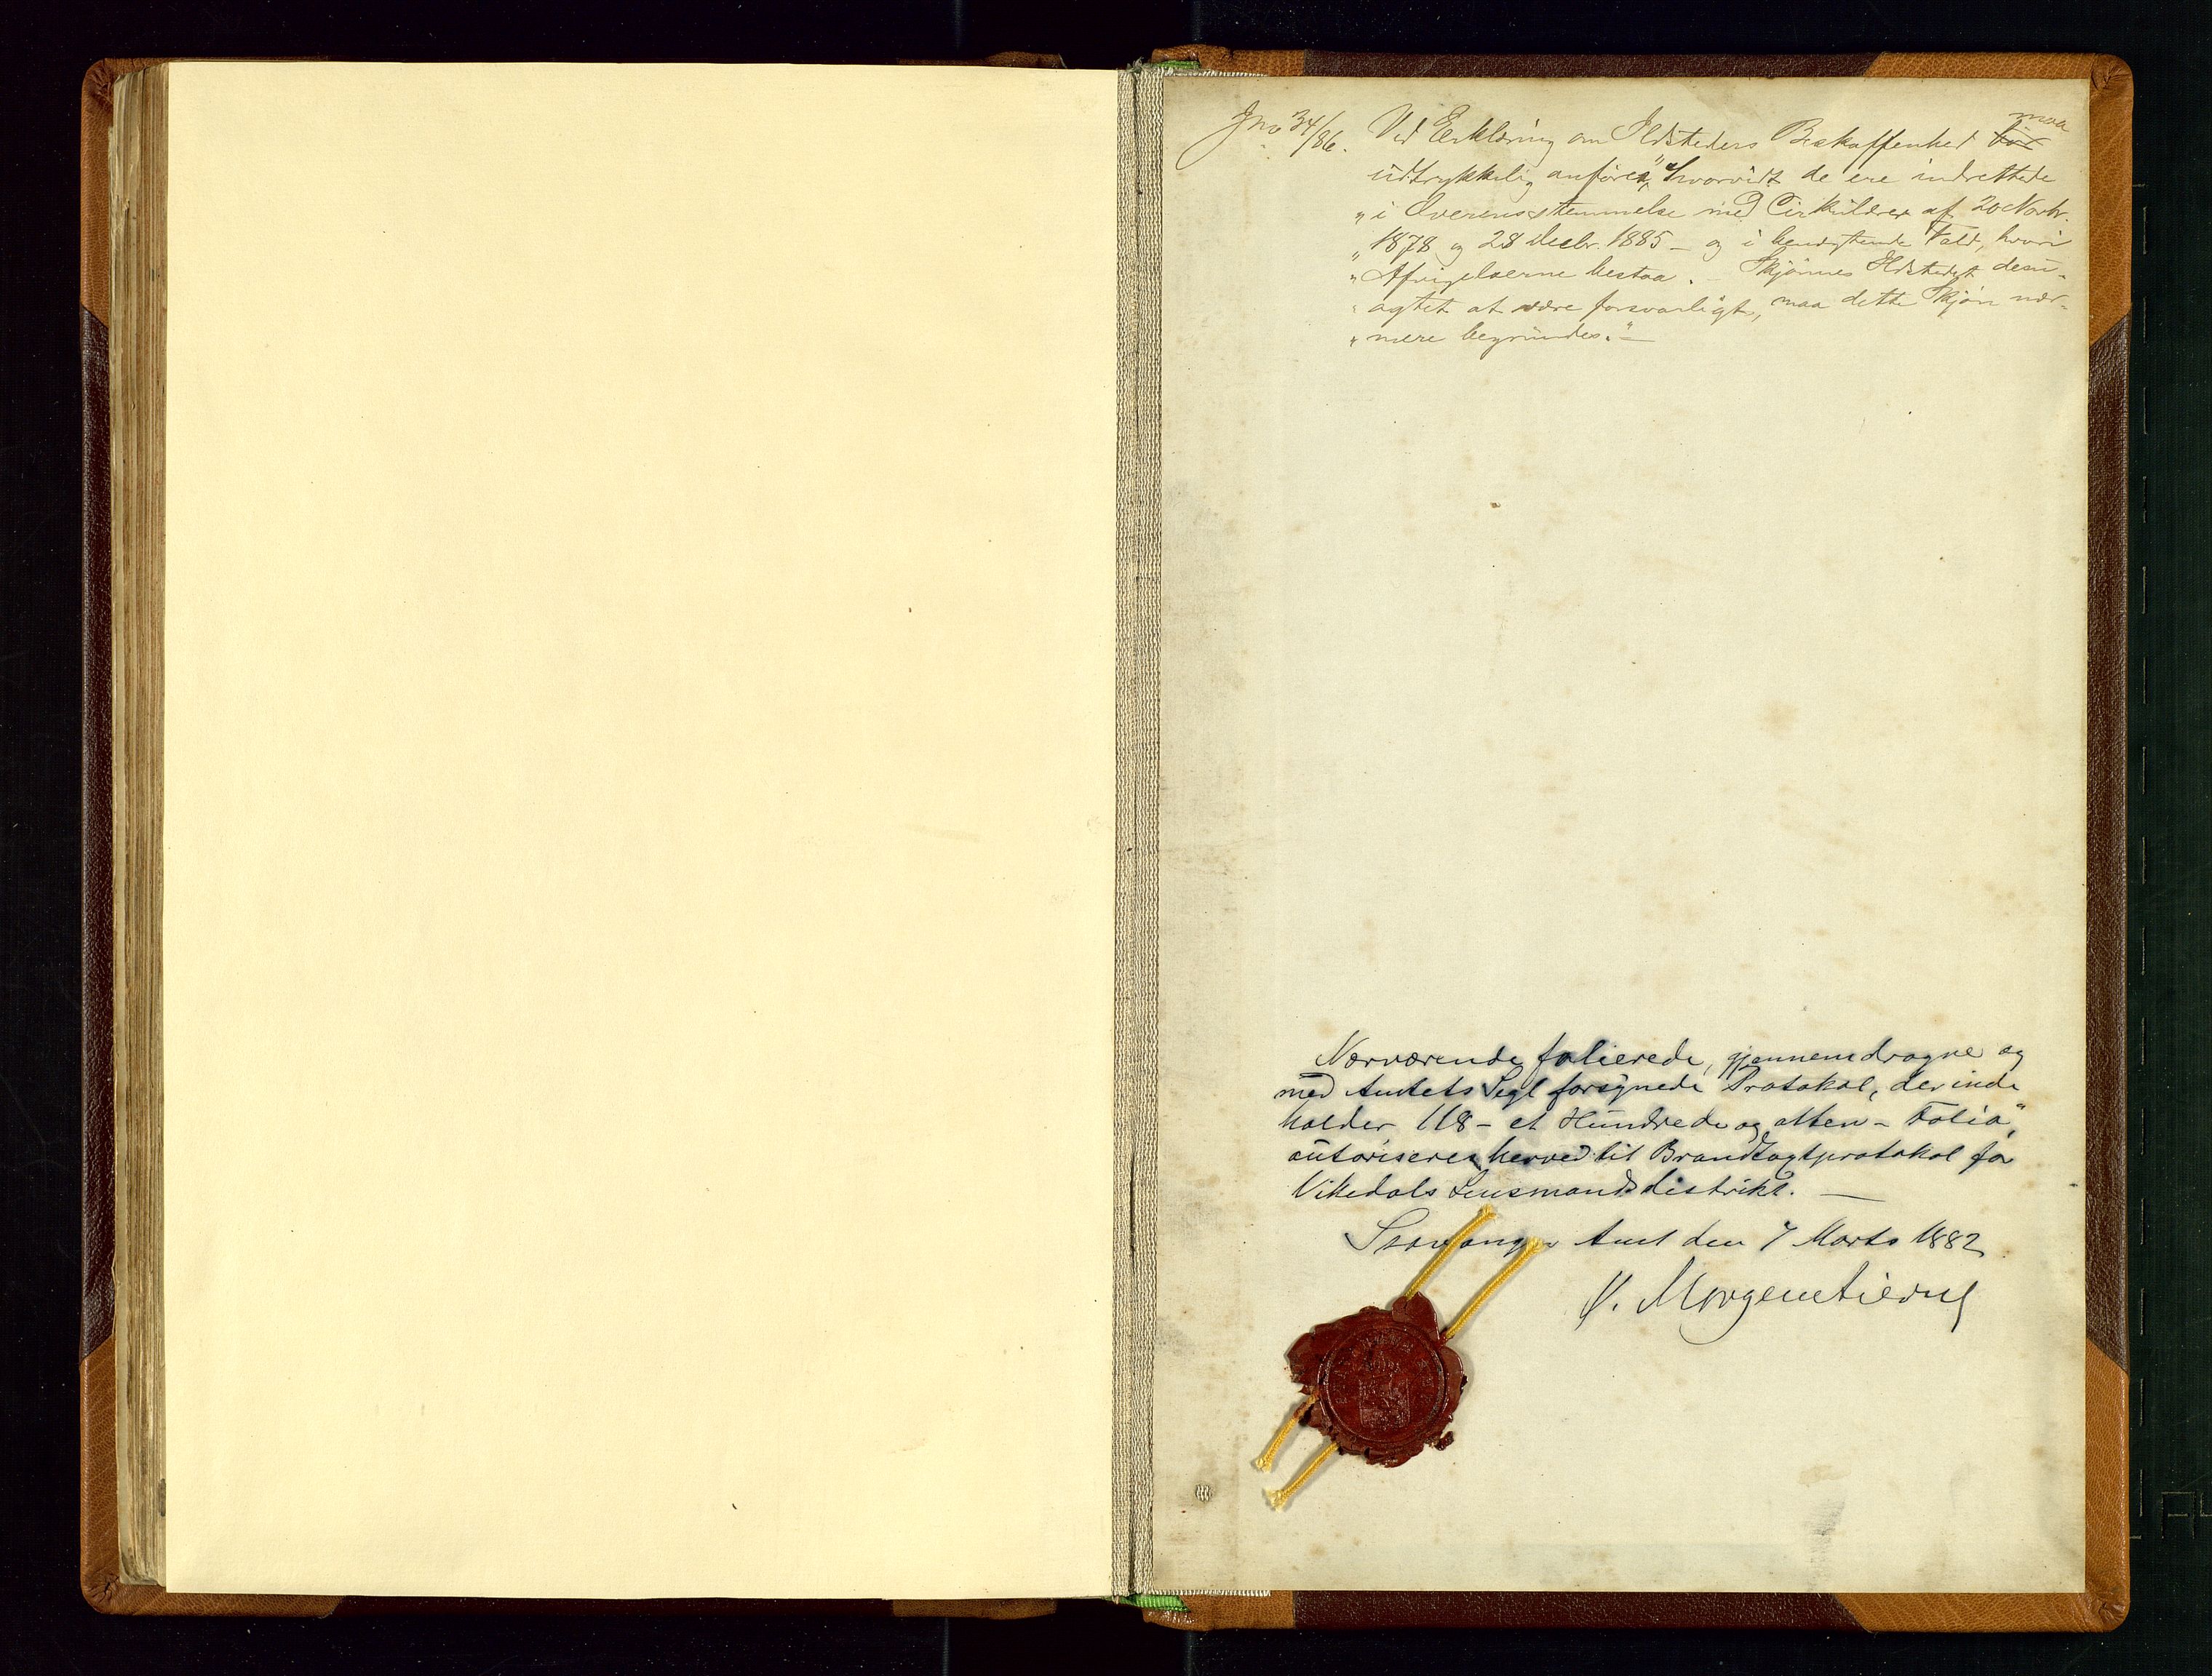 Jno 34/86. Ved Erklæring om Ildsteders Beskaffenhed bör maa
udtrykkelig anföres, "hvorvidt de ere indrettede
"i Overensstemmelse med Cirkulærer af 20 Novbr.
"1878 og 28 Decbr. 1885 – og i benægtende Fald, hvori
"Afvigelserne bestaa. – Skjönnes Ildstedet desu-
"agtet at være forsvarligt, maa dette Skjön nær-
"mere begrundes." –
Nærværende folierede, gjennemdragne og
med Amtets Segl forsynede Protokol, der inde
holder 118 – et Hundrede og atten – Folia,
autoriseres herved til Brandtagtprotokol for
Vikedals Lensmandsdistrikt. –
Stavanger Amt den 7 Marts 1882
V. Morgenstierne